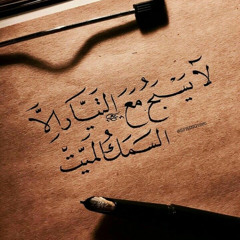 لَا يَسْبَحُ مَعَ التَّيَّارِ إِلاَّ
السَّمَكُ المَيِّتُ